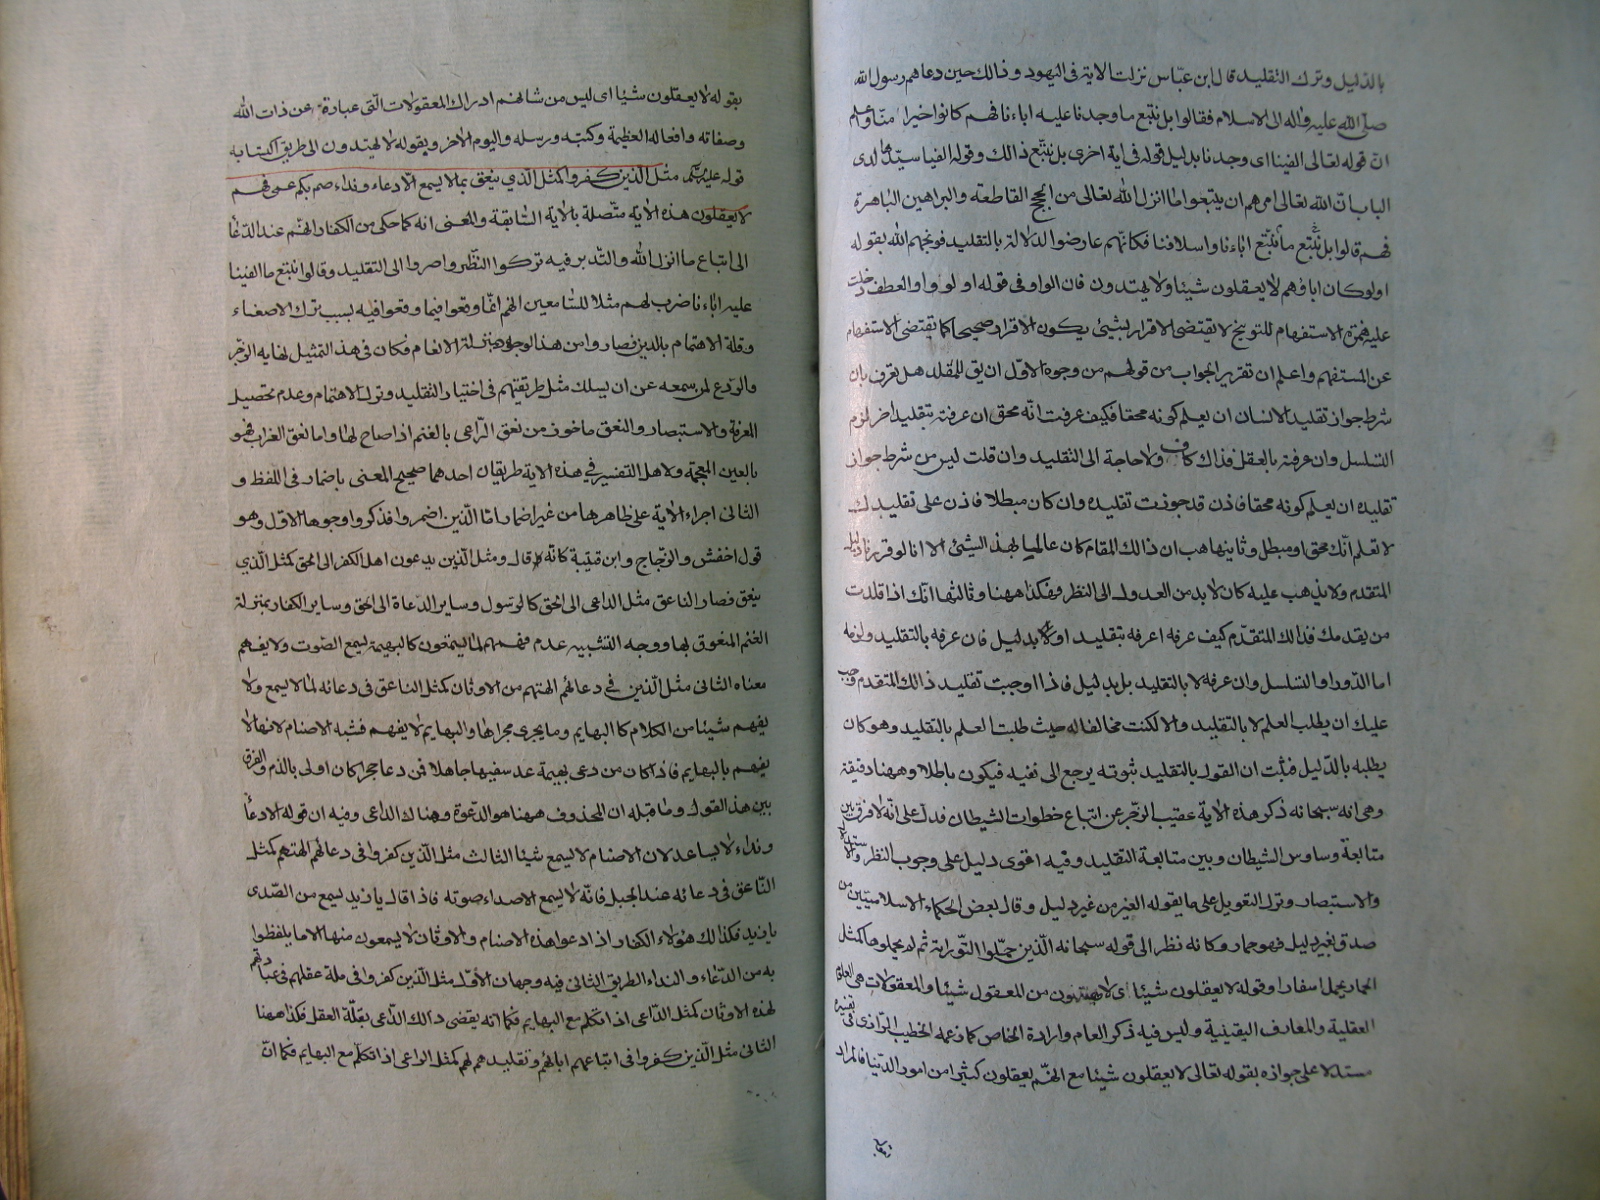 بالدليل وترك التقليد قال ابن عباس نزلت الاية فى اليهود وذالك حين دعاهم رسول الله
صلى الله عليه واله الى الاسلام فقالوا بل نتبع ما وجدنا عليه اباءنا فهم كانوا خيرا منا واعلم
ان قوله تعالى الفينا اى وجدنا بدليل قوله فى اية اخرى بل نتبع ذالك وقوله الفيا سيدها لدى
الباب ان الله تعالى امرهم ان يتبعوا ما انزل الله تعالى من الحجج القاطعة والبراهين الباهرة
فهم قالوا بل نتبع ما نتبع اباءنا واسلافنا فكانهم عارضوا الدلالة بالتقليد فوبخهم الله بقوله
اولو كان اباؤهم لا يعقلون شيئا ولا يهتدون فان الواو فى قوله اولو واو العطف دخلت
عليه همزة الاستفهام للتوبيخ لا يقتضى الاقرار بشئ يكون الاقرار صحيحا كما يقتضى الاستفهام
عن المستفهم واعلم ان تقرير الجواب من قولهم من وجوه الاول ان يق للمقلد هل تعرف بان
شرط جواز تقليد الانسان ان يعلم كونه محقا فكيف عرفت انه محق ان عرفته بتقليد اخر لزم
التسلسل وان عرفته بالعقل فذاك كاف ولا حاجة الى التقليد وان قلت ليس من شرط جواز
تقليده ان يعلم كونه محقا فاذن قد جوزت تقليده وان كان مبطلا فاذن على تقليدك
لا تعلم انك محق او مبطل وثانيها هب ان ذالك المقام كان عالما بهذا الشيئ الا انا لو قررنا ذلك
المتقدم ولا يذهب عليه كان لا بد من العدول الى النظر فهكذا ههنا وثالثها انك اذا قلدت
من يقدمك فذالك المتقدم كيف عرفه اعرفه بتقليد اولا بدليل فان عرفه بالتقليد ولزمه
اما الدور او التسلسل وان عرفه لا بالتقليد بل بدليل فاذا اوجبت تقليد ذالك المتقدم وجب
عليك ان يطلب العلم لا بالتقليد والا لكنت مخالفا له حيث طلبت العلم بالتقليد وهو كان
يطلبه بالدليل فثبت ان القول بالتقليد ثبوته يرجع الى نفيه فيكون باطلا وههنا دقيقة
وهى انه سبحانه ذكر هذه الاية عقيب الزجر عن اتباع خطوات الشيطان فدل على انه لا فرق بين
متابعة وساوس الشيطان وبين متابعة التقليد وفيه اقوى دليل على وجوب النظر والاستدلال
والاستبصار وترك التعويل على ما يقوله الغير من غير دليل وقال بعض الحكماء الاسلاميين من
صدق بغير دليل فهو حمار وكانه نظر الى قوله سبحانه الذين حملوا التورية ثم لم يحملوها كمثل
الحمار يحمل اسفارا وقوله لا يعقلون شيئا اى لا يهتدون من المعقول شيئا والمعقولات هى العلوم
العقلية والمعارف اليقينية وليس فيه ذكر العام وارادة الخاص كما زعمه الخطيب الرازى فى تفسيره
مستدلا على جوازه بقوله تعالى لا يعقلون شيئا مع انهم يعقلون كثيرا من امور الدنيا فالمراد
بقوله
بقوله لا يعقلون شيئا اى ليس من شانهم ادراك المعقولات التى عبادة عن ذات الله
وصفاته وافعاله العظيمة وكتبه ورسله واليوم الاخر وبقوله لا يهتدون الى طريق اكتسابه
قوله مثل الذين كفروا كمثل الذي ينعق بما لا يسمع الا دعاء ونداء صم بكم عمى فهم
لا يعقلون هذه الاية متصلة بالاية السابقة والمعنى انه كما حكى من الكفار انهم عند الدعا
الى اتباع ما انزل الله والتدبر فيه تركوا النظر واصروا الى التقليد وقالوا نتبع ما الفينا
عليه اباءنا ضرب لهم مثلا للسامعين انهم انما وقعوا فيما وقعوا فيه بسبب ترك الاصغاء
وقلة الاهتمام بالدين فصاروا من هذا الوجه بمنزلة الانعام فكان فى هذا التمثيل نهاية الزجر
والردع لمن سمعه عن ان يسلك مثل طريقتهم فى اختيار التقليد وترك الاهتمام وعدم تحصيل
المعرفة والاستبصار والنعق ماخوذ من نعق الراعى بالغنم اذا صاح لها واما نعق الغراب فهو
بالعين المعجمة ولاهل التفسير فى هذه الاية طريقان احدهما صحيح المعنى باضمار فى اللفظ و
الثانى اجراء الاية على ظاهرها من غير اضمار اما الذين اضمروا فذكروا وجوها الاول وهو
قول اخفش والزجاج وابن قتيبة كانه قال ومثل الذين يدعون اهل الكفر الى الحق كمثل الذي
ينعق فصار الناعق مثل الداعى الى الحق كالرسول وساير الدعاة الى الحق وساير الكفار بمنزلة
الغنم المنعوق بها ووجه التشبيه عدم فهمهم لما يسمعون كالبهيمة تسمع الصوت ولا يفهم
معناه الثانى مثل الذين فى دعائهم الهتهم من الاوثان كمثل الناعق فى دعائه لما لا يسمع ولا
يفهم شيئا من الكلام كالبهايم وما يجرى مجراها والبهايم لا يفهم فشبه الاصنام لانها لا
يفهم بالبهايم فاذا كان من دعى بهيمة عد سفيها جاهلا فمن دعا حجرا كان اولى بالذم والفرق
بين هذا القول وما قبله ان المحذوف ههنا هو الدعوة وهناك الداعى وفيه ان قوله الا دعا
ونداء لا يساعد لان الاصنام لا يسمع شيئا الثالث مثل الذين كفروا فى دعائهم الهتهم كمثل
الناعق فى دعائه عند الجبل فانه لا يسمع الا صداء صوته فاذا قال يا زيد يسمع من الصدى
يا زيد فكذالك هؤلاء الكفار اذا دعوا هذه الاصنام والاوثان لا يسمعون منها الا ما يلفظوا
به من الدعاء والنداء الطريق الثانى فيه وجهان الاول مثل الذين كفروا فى قلة عقلهم فى عبادتهم
لهذه الاوثان كمثل الداعى اذا تكلم مع البهايم فكما انه يقضى ذالك الداعى بقلة العقل فكذا ههنا
الثانى مثل الذين كفروا فى اتباعهم اباءهم وتقليدهم لهم كمثل الراعى اذا تكلم مع البهايم فكما ان